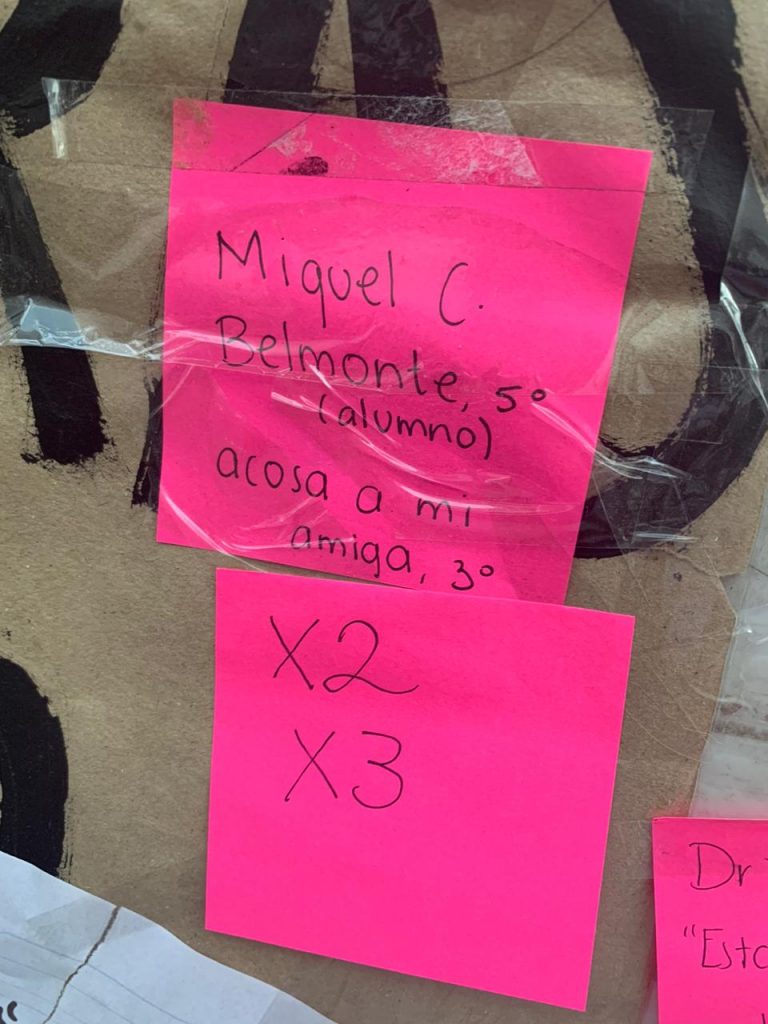 Miguel C.
Belmonte, 5°
(alumno)
acosa a mi
amiga, 3°
X2
X3
Dr
"Esto